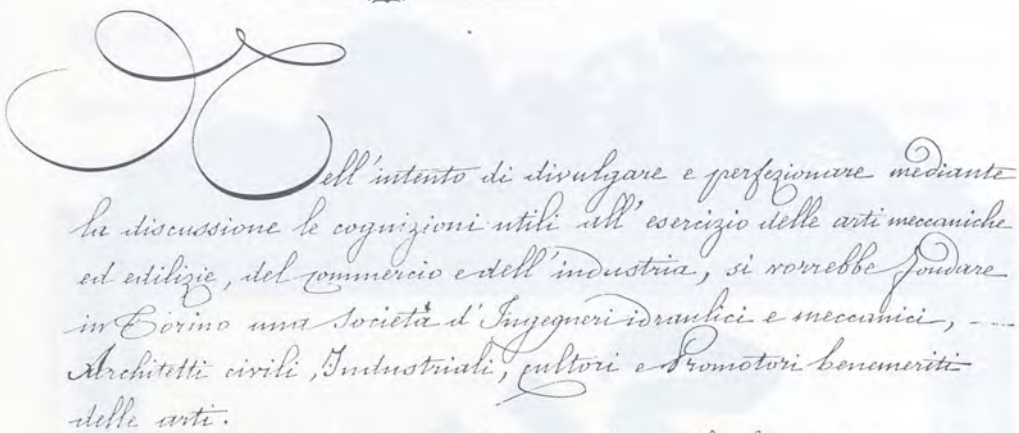 Nell'intento di divulgare e perfezionare mediante
la discussione le cognizioni utili all'esercizio delle arti meccaniche
ed edilizie, del commercio e dell'industria, si vorrebbe fondare
in Torino una Società d'Ingegneri idraulici e meccanici, -
Architetti civili, Industriali, cultori e Promotori benemeriti
delle arti.